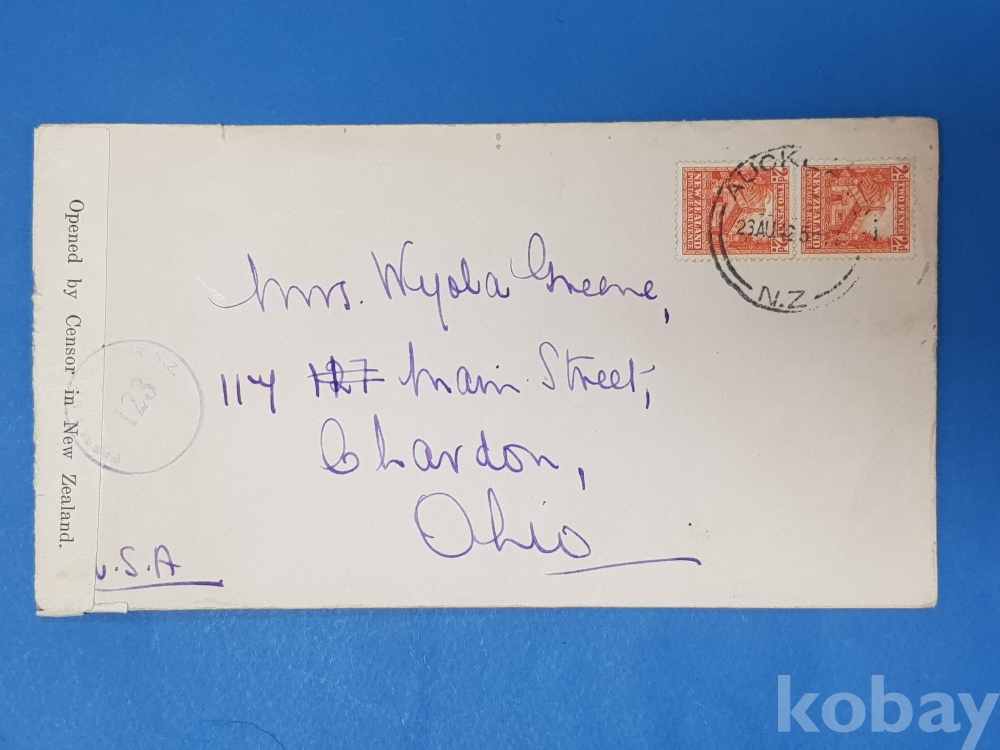 Opened by Censor in New Zealand.
N.Z.
123
2d TWO PENCE 2d
NEW ZEALAND
POSTAGE & REVENUE
2d TWO PENCE 2d
NEW ZEALAND
POSTAGE & REVENUE
AUCK
N.Z
Mrs. Wyola Greene,
114 127 Main Street,
Chardon,
Ohio
U.S.A
kobay